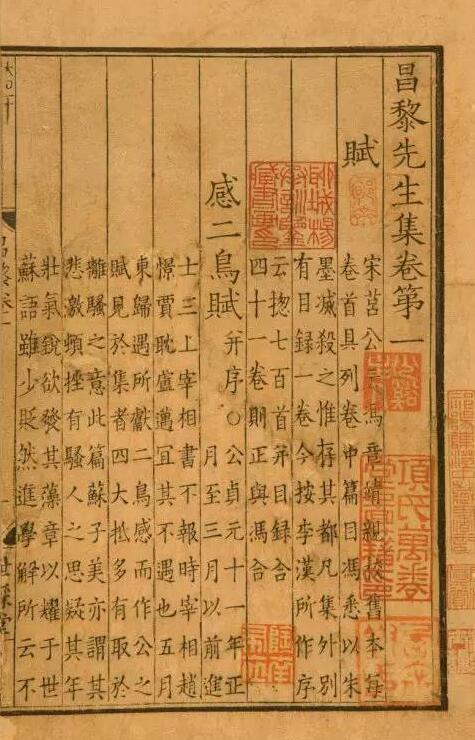 昌黎先生集卷第一
賦
宋莒公云馮章靖親校舊本每
卷首具列卷中篇目馮悉以朱
墨滅殺之惟存其都凡集外别
有目録一卷今按李漢所作序
云揔七百首并目録合
四十一卷則正與馮合
感二鳥賦 并序○公貞元十一年正
月至三月以前進
士三上宰相書不報時宰相趙
憬賈耽盧邁宜其不遇也五月
東歸遇所獻二鳥感而作公之
賦見於集者四大抵多有取於
離騷之意此篇蘇子美亦謂其
悲激頓挫有騷人之思疑其年
壯氣鋭欲發其藻章以耀于世
蘇語雖少貶然進學解所云不
昌黎卷一
世綵堂
項氏萬卷
堂圖籍印